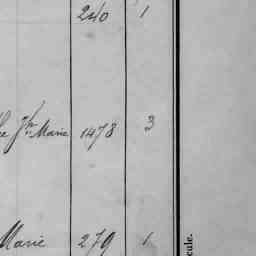 240 1
Marie 1478 3
Marie 279 1
cale.